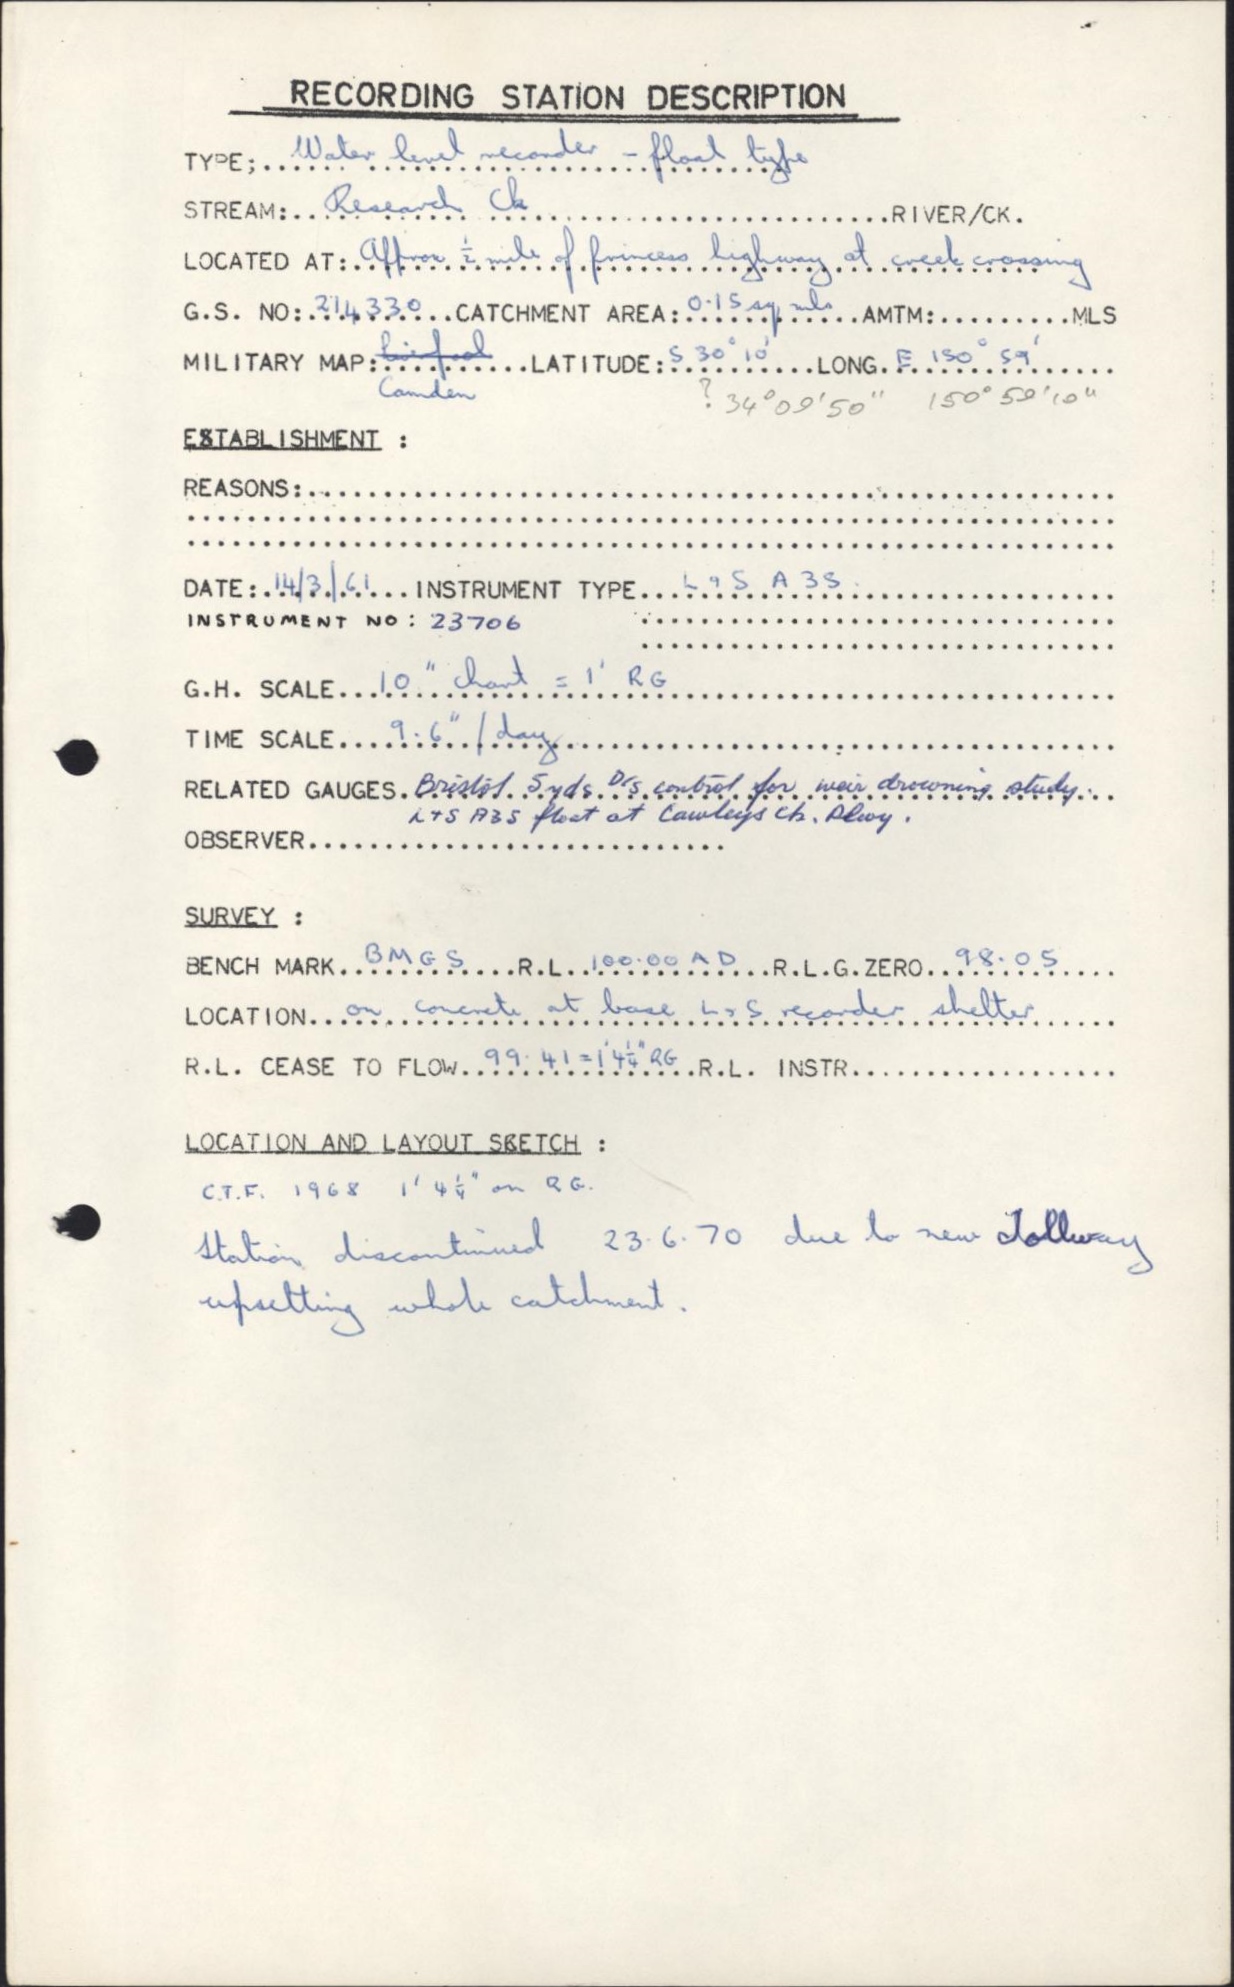 RECORDING STATION DESCRIPTION
TYPE; Water level recorder - float type
STREAM: Research Ck RIVER/CK.
LOCATED AT: Approx ½ mile of princess highway at creek crossing
G.S. NO: 214330 CATCHMENT AREA: 0.15 sq mls AMTM: MLS
MILITARY MAP: LATITUDE: S 30° 10' LONG. E 150° 59'
Camden ? 34°09'50" 150°59'10"
ESTABLISHMENT :
REASONS:
DATE: 14/3/61 INSTRUMENT TYPE L & S A 35.
INSTRUMENT NO: 23706
G.H. SCALE 10" chart = 1' RG
TIME SCALE 9.6" / day
RELATED GAUGES. Bristol 5yds D/S control for weir drowning study.
L+S A35 float at Cawleys Ck. Alwy.
OBSERVER
SURVEY :
BENCH MARK BMGS R.L. 100.00 AD R.L.G.ZERO 98.05
LOCATION on concrete at base L&S recorder shelter
R.L. CEASE TO FLOW 99.41 = 1'4¼" RG R.L. INSTR
LOCATION AND LAYOUT SKETCH :
C.T.F. 1968 1' 4¼" on RG.
Station discontinued 23.6.70 due to new Tollway
upsetting whole catchment.